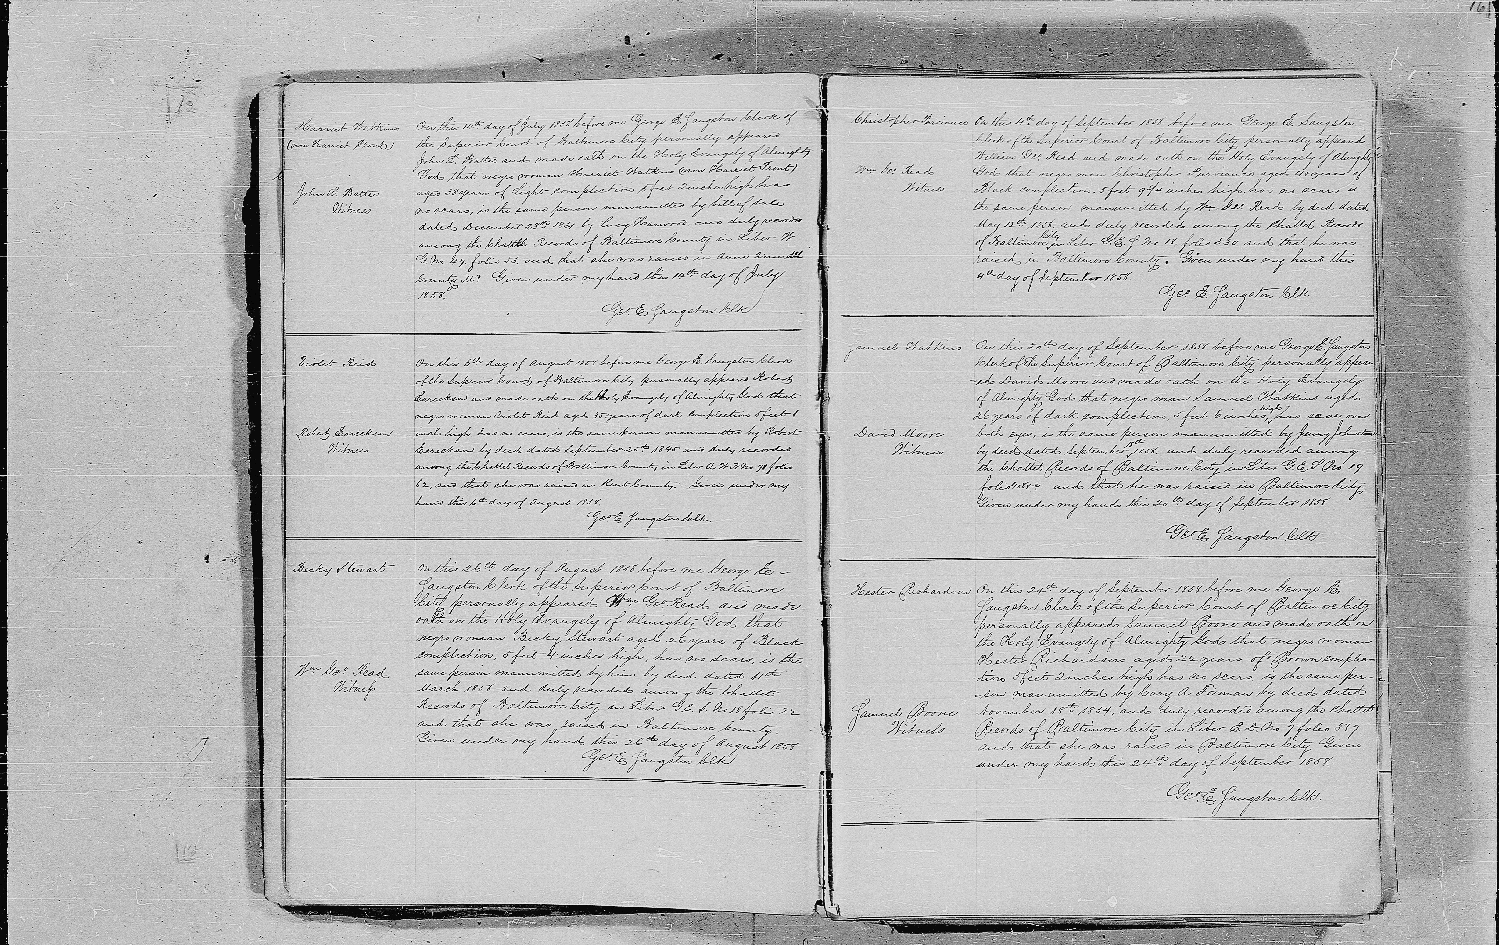 Harriet Watkins
(now Harriet Trent)
John L. Butts
Witness
On this 14th day of July 1858 before me George E. Sangston Clerk of
the Superior Court of Baltimore City personally appears
John L. Butts and made oath on the Holy Evangely of Almighty
God, that negro woman Harriet Watkins (now Harriet Trent)
aged 38 years of Light complection 5 feet 2 inches high has
no scars, is the same person manumitted by bill of sale
dated December 28th by and duly recorded
among the Chattel Records of Baltimore County in Liber W
G folio 33 and that she was raised in Anne Arundel
County Md. Given under my hand this 14th day of July
1858.
Geo E. Sangston Clk
Violet Reid
Robert Erickson
Witness
On this 6th day of August 1858 before me George E Sangston Clerk
of the Superior Court of Baltimore City personally appears Robert
Erickson and made oath on the Holy Evangely of Almighty God that
negro woman Violet Reid aged 35 years of dark complection 5 feet 1
inch high has no scars, is the same person manumitted by Robert
Erickson by deed dated September 20th 1845 and duly recorded
among the Chattel Records of Baltimore County in Liber A. W. B. No 78 folio
62, and that she was raised in Kent County. Given under my
hand this 6th day of August 1858.
Geo E Sangston Clk.
Becky Stewart
Wm Geo Read
Witness
On this 26th day of August 1858 before me George E.
Sangston Clerk of the Superior Court of Baltimore
City personally appeared Wm Geo Read and made
oath on the Holy Evangely of Almighty God that
negro woman Becky Stewart aged 26 years of Black
complection, 5 feet 4 inches high, has no scars, is the
same person manumitted by him by deed dated 11th
March 1858 and duly recorded among the Chattel
Records of Baltimore City in Liber G. E. S. No 18 folio 22
and that she was raised in Baltimore County
Given under my hand this 26th day of August 1858
Geo E Sangston Clk
Christopher
Wm Geo Read
Witness
On this 4th day of September 1858 before me George E. Sangston
Clerk of the Superior Court of Baltimore City personally appeared
William Geo. Read and made oath on the Holy Evangely of Almighty
God that negro man Christopher aged years of
Black complection 5 feet 9 1/2 inches high, has no scars is
the same person manumitted by Wm Geo. Read by deed dated
May 12th 1858 and duly recorded among the Chattel Records
of Baltimore City in Liber G. E. S No 18 folio 30 and that he was
raised in Baltimore County. Given under my hand this
4th day of September 1858
Geo E. Sangston Clk
Samuel Watkins
David Moore
Witness
On this 20th day of September 1858 before me George E Sangston
Clerk of the Superior Court of Baltimore City personally appear
ed David Moore and made oath on the Holy Evangely
of Almighty God that negro man Samuel Watkins aged
26 years of dark complection 5 feet 6 inches high, has scar over
both eyes, is the same person manumitted by Jenny Johnston
by deed dated September 1858 and duly recorded among
the Chattel Records of Baltimore City in Liber G. E. S No 19
folio and that he was raised in Baltimore City
Given under my hand this 20th day of September 1858
Geo E. Sangston Clk
Hester Richardson
Samuel Boone
Witness
On this 24th day of September 1858 before me George E.
Sangston Clerk of the Superior Court of Baltimore City
personally appeared Samuel Boone and made oath on
the Holy Evangely of Almighty God that negro woman
Hester Richardson aged 22 years of Brown complec
tion 5 feet 2 inches high has no scars is the same per-
son manumitted by Cary A. Forman by deed dated
November 18th 1854, and duly recorded among the Chattel
Records of Baltimore City in Liber E. D. No 7 folio 387
and that she was raised in Baltimore City Given
under my hand this 24th day of September 1858
Geo E. Sangston Clk.